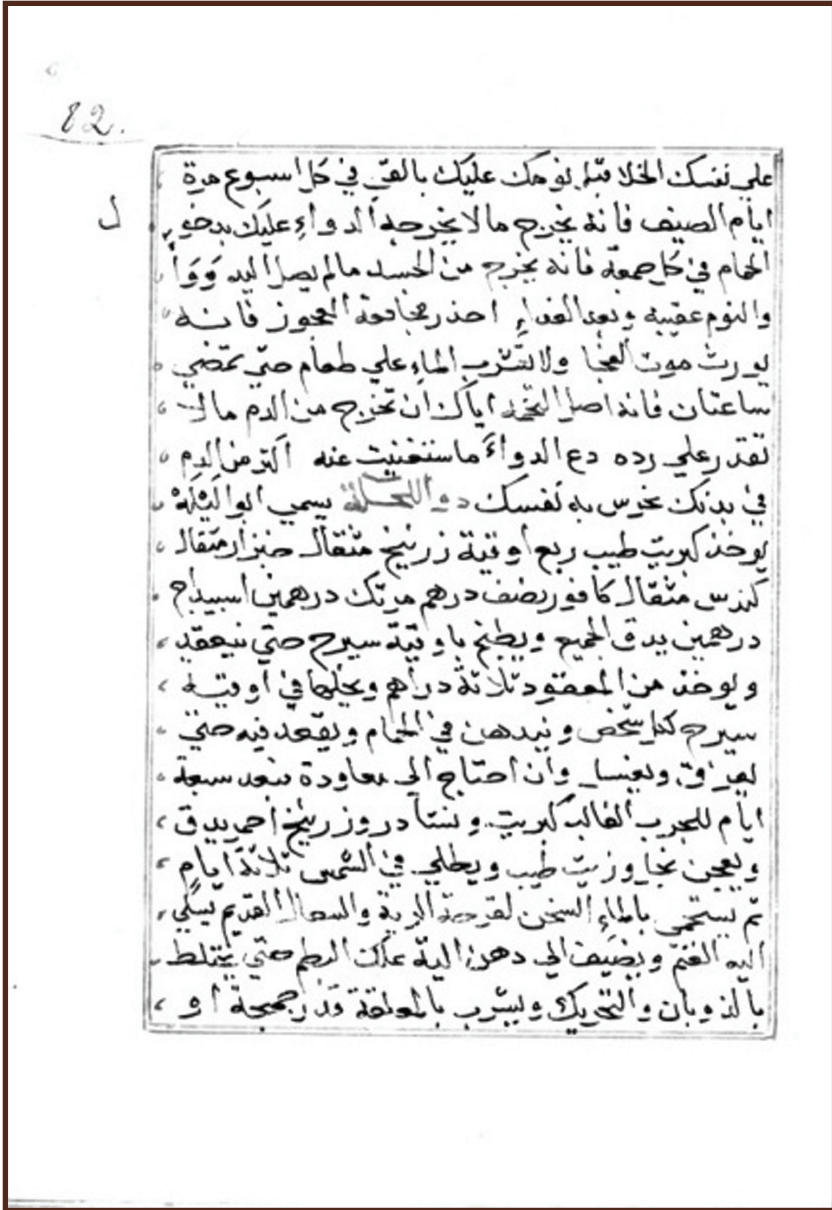 82.
علي نفسك الخلا قبل نومك عليك بالقي في كل اسبوع مرة
ل
ايام الصيف فانه يخرج ما لا يخرجه الدواء عليك بدخول
الحمام في كل جمعة فانه يخرج من الجسد ما لم يصل اليه دواأ
والنوم عقيبه وبعد الغداء احذر مجامعة العجوز فانه
يورث موت الفجا ولا تشرب الماء علي طعام حتي تمضي
ساعتان فانه اصل التخمه اياك ان تخرج من الدم مالا
تقدر علي رده دع الدواء ماستغنيت عنه اكثر من الدم
في بدنك تحرس به نفسك دوا للحكة يسمي ابو اليله
يوخذ كبريت طيب ربع اوقية زرنيخ مثقال جنزار مثقال
كندس مثقال كافور نصف درهم مرتك درهمين اسبيداج
درهمين يدق الجميع ويطبخ باوقية سيرج حتي ينعقد
ويوخذ من المعقود ثلاثة دراهم ويحلها في اوقية
سيرج كل شخص ويندهن في الحمام ويقعد فيه حتي
يعرق ويغسل وان احتاج الي معاودة بعد سبعة
ايام للجرب الغالب كبريت ونشادر وزرنيخ احمر يدق
ويعجن بخل وزيت طيب ويطلي في الشمس ثلاثة ايام
ثم يستحمي بالماء السخن لقرحة الرية والسعال القديم يسلي
الية الغنم ويضيف الي دهن الية علك البطم حتي يختلط
بالذوبان والتحريك ويشرب بالملعقة قدر او